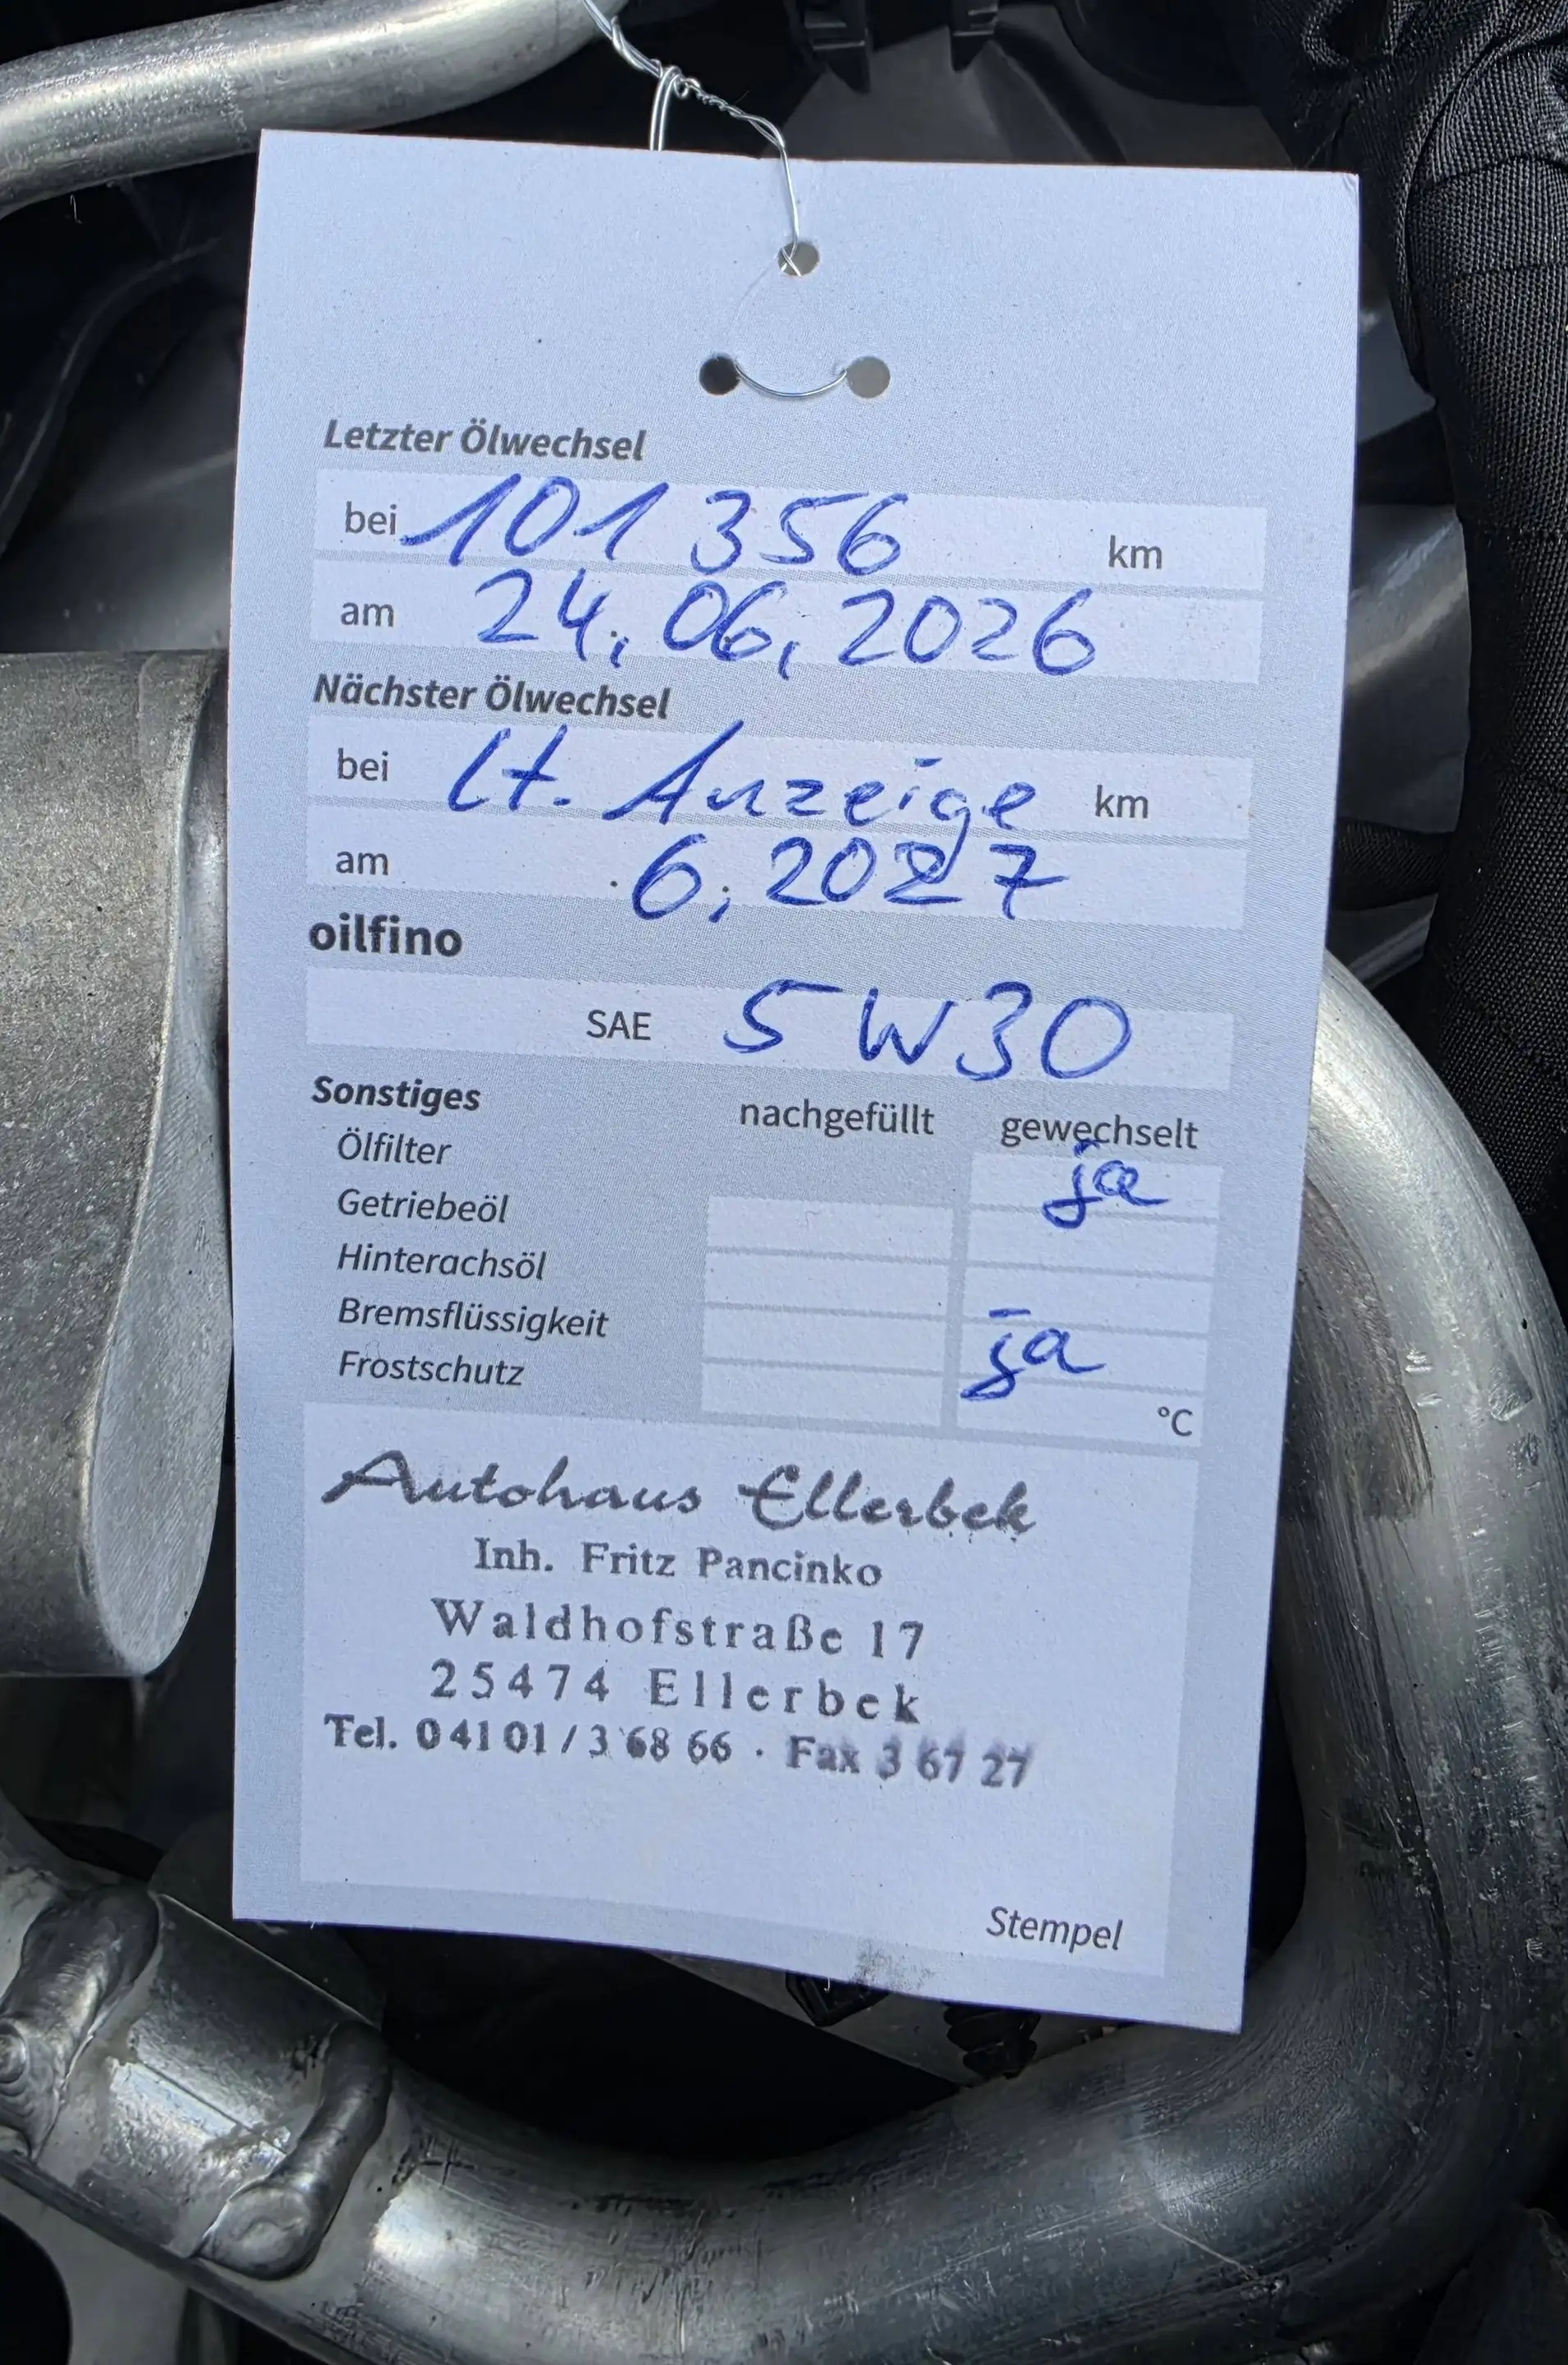 Letzter Ölwechsel
bei 101 356 km
am 24.06.2026
Nächster Ölwechsel
bei lt. Anzeige km
am 6.2027
oilfino
SAE 5W30
Sonstiges nachgefüllt gewechselt
Ölfilter ja
Getriebeöl
Hinterachsöl
Bremsflüssigkeit ja
Frostschutz °C
Autohaus Ellerbek
Inh. Fritz Pancinko
Waldhofstraße 17
25474 Ellerbek
Tel. 0 41 01 / 3 68 66 · Fax 3 67 27
Stempel